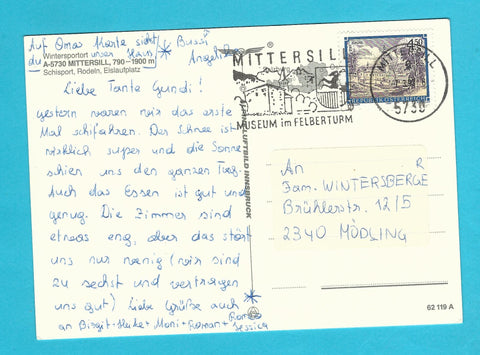 Auf Omas Karte sieht * Bussi
du unser Haus Angelika
Wintersportort
A-5730 MITTERSILL, 790-1900 m
Schisport, Rodeln, Eislaufplatz
Liebe Tante Gundi!
gestern waren wir das erste
Mal schifahren. Der Schnee ist
wirklich super und die Sonne
schien uns den ganzen Tag.
Auch das Essen ist gut und
genug. Die Zimmer sind
etwas eng, aber das stört
uns nur wenig (wir sind
zu sechst und vertragen
uns gut) Liebe Grüße auch *
an Birgit + Heike + Moni + Roman +
Jessica
LUFTBILD INNSBRUCK
MITTERSILL
MUSEUM im FELBERTURM
4.50
REPUBLIK ÖSTERREICH
MITTERSILL
5730
An R
Fam. WINTERSBERGE
Brühlerstr. 12/5
2340 MÖDLING
62 119 A